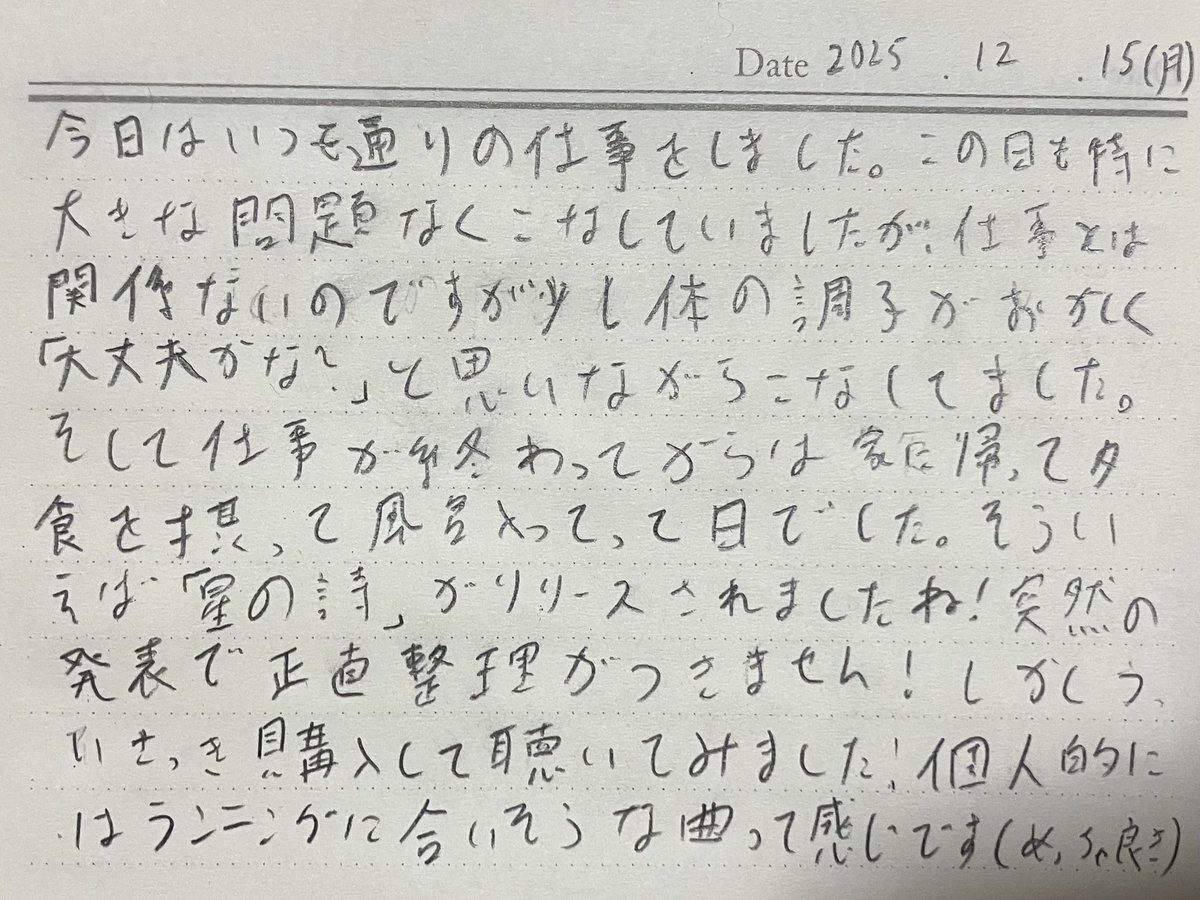 Date 2025 . 12 . 15(月)
今日はいつも通りの仕事をしました。この日も特に
大きな問題なくこなしていましたが、仕事とは
関係ないのですが少し体の調子がおかしく
「大丈夫かな?」と思いながらこなしてました。
そして仕事が終わってからは家に帰って夕
食を摂って風呂入ってって日でした。そうい
えば「星の詩」がリリースされましたね!突然の
発表で正直整理がつきません!しかしつ
いさっき購入して聴いてみました!個人的に
はランニングに合いそうな曲って感じです(めっちゃ良き)